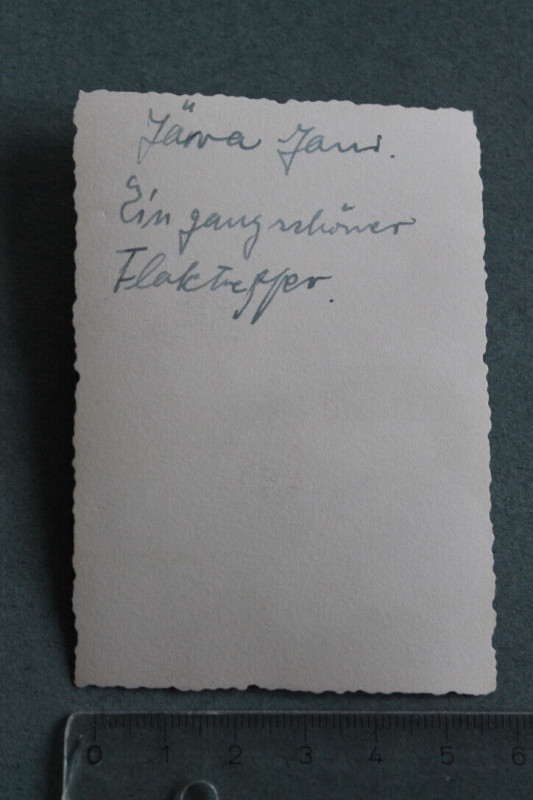 Järva Jani.
Ein ganz schöner
Flaktreffer.
0 1 2 3 4 5 6